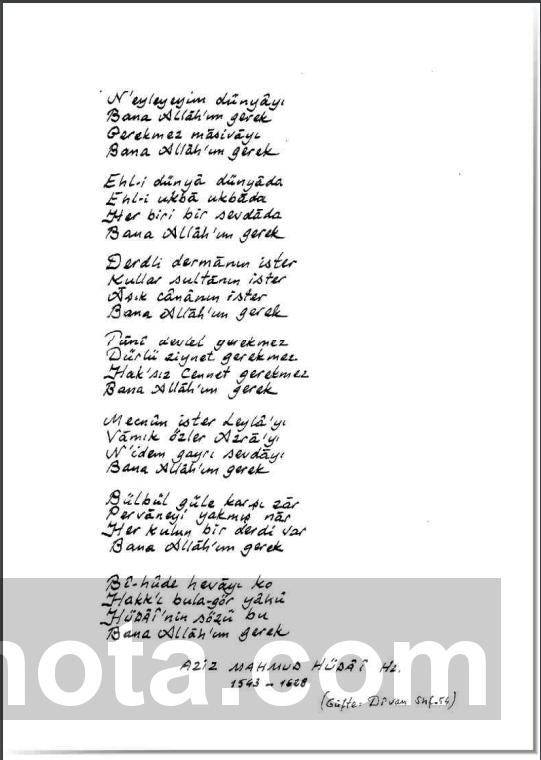 N'eyleyeyim dünyâyı
Bana Allâh'ım gerek
Gerekmez mâsivâyı
Bana Allâh'ım gerek
Ehl-i dünyâ dünyâda
Ehl-i ukbâ ukbâda
Her biri bir sevdâda
Bana Allâh'ım gerek
Derdli dermânın ister
Kullar sultanın ister
Âşık cânânın ister
Bana Allâh'ım gerek
Fânî devlet gerekmez
Dürlü ziynet gerekmez
Hak'sız Cennet gerekmez
Bana Allâh'ım gerek
Mecnûn ister Leylâ'yı
Vâmık özler Azrâ'yı
N'idem gayrı sevdâyı
Bana Allâh'ım gerek
Bülbül güle karşı zâr
Pervâneyi yakmış nâr
Her kulun bir derdi var
Bana Allâh'ım gerek
Bî-hûde hevâyı ko
Hakk'ı bula-gör yâhû
HÜDÂÎ'nin sözü bu
Bana Allâh'ım gerek
nota.com
AZİZ MAHMUD HÜDÂÎ Hz.
1543 - 1628
(Güfte: Dîvan Shf.54)